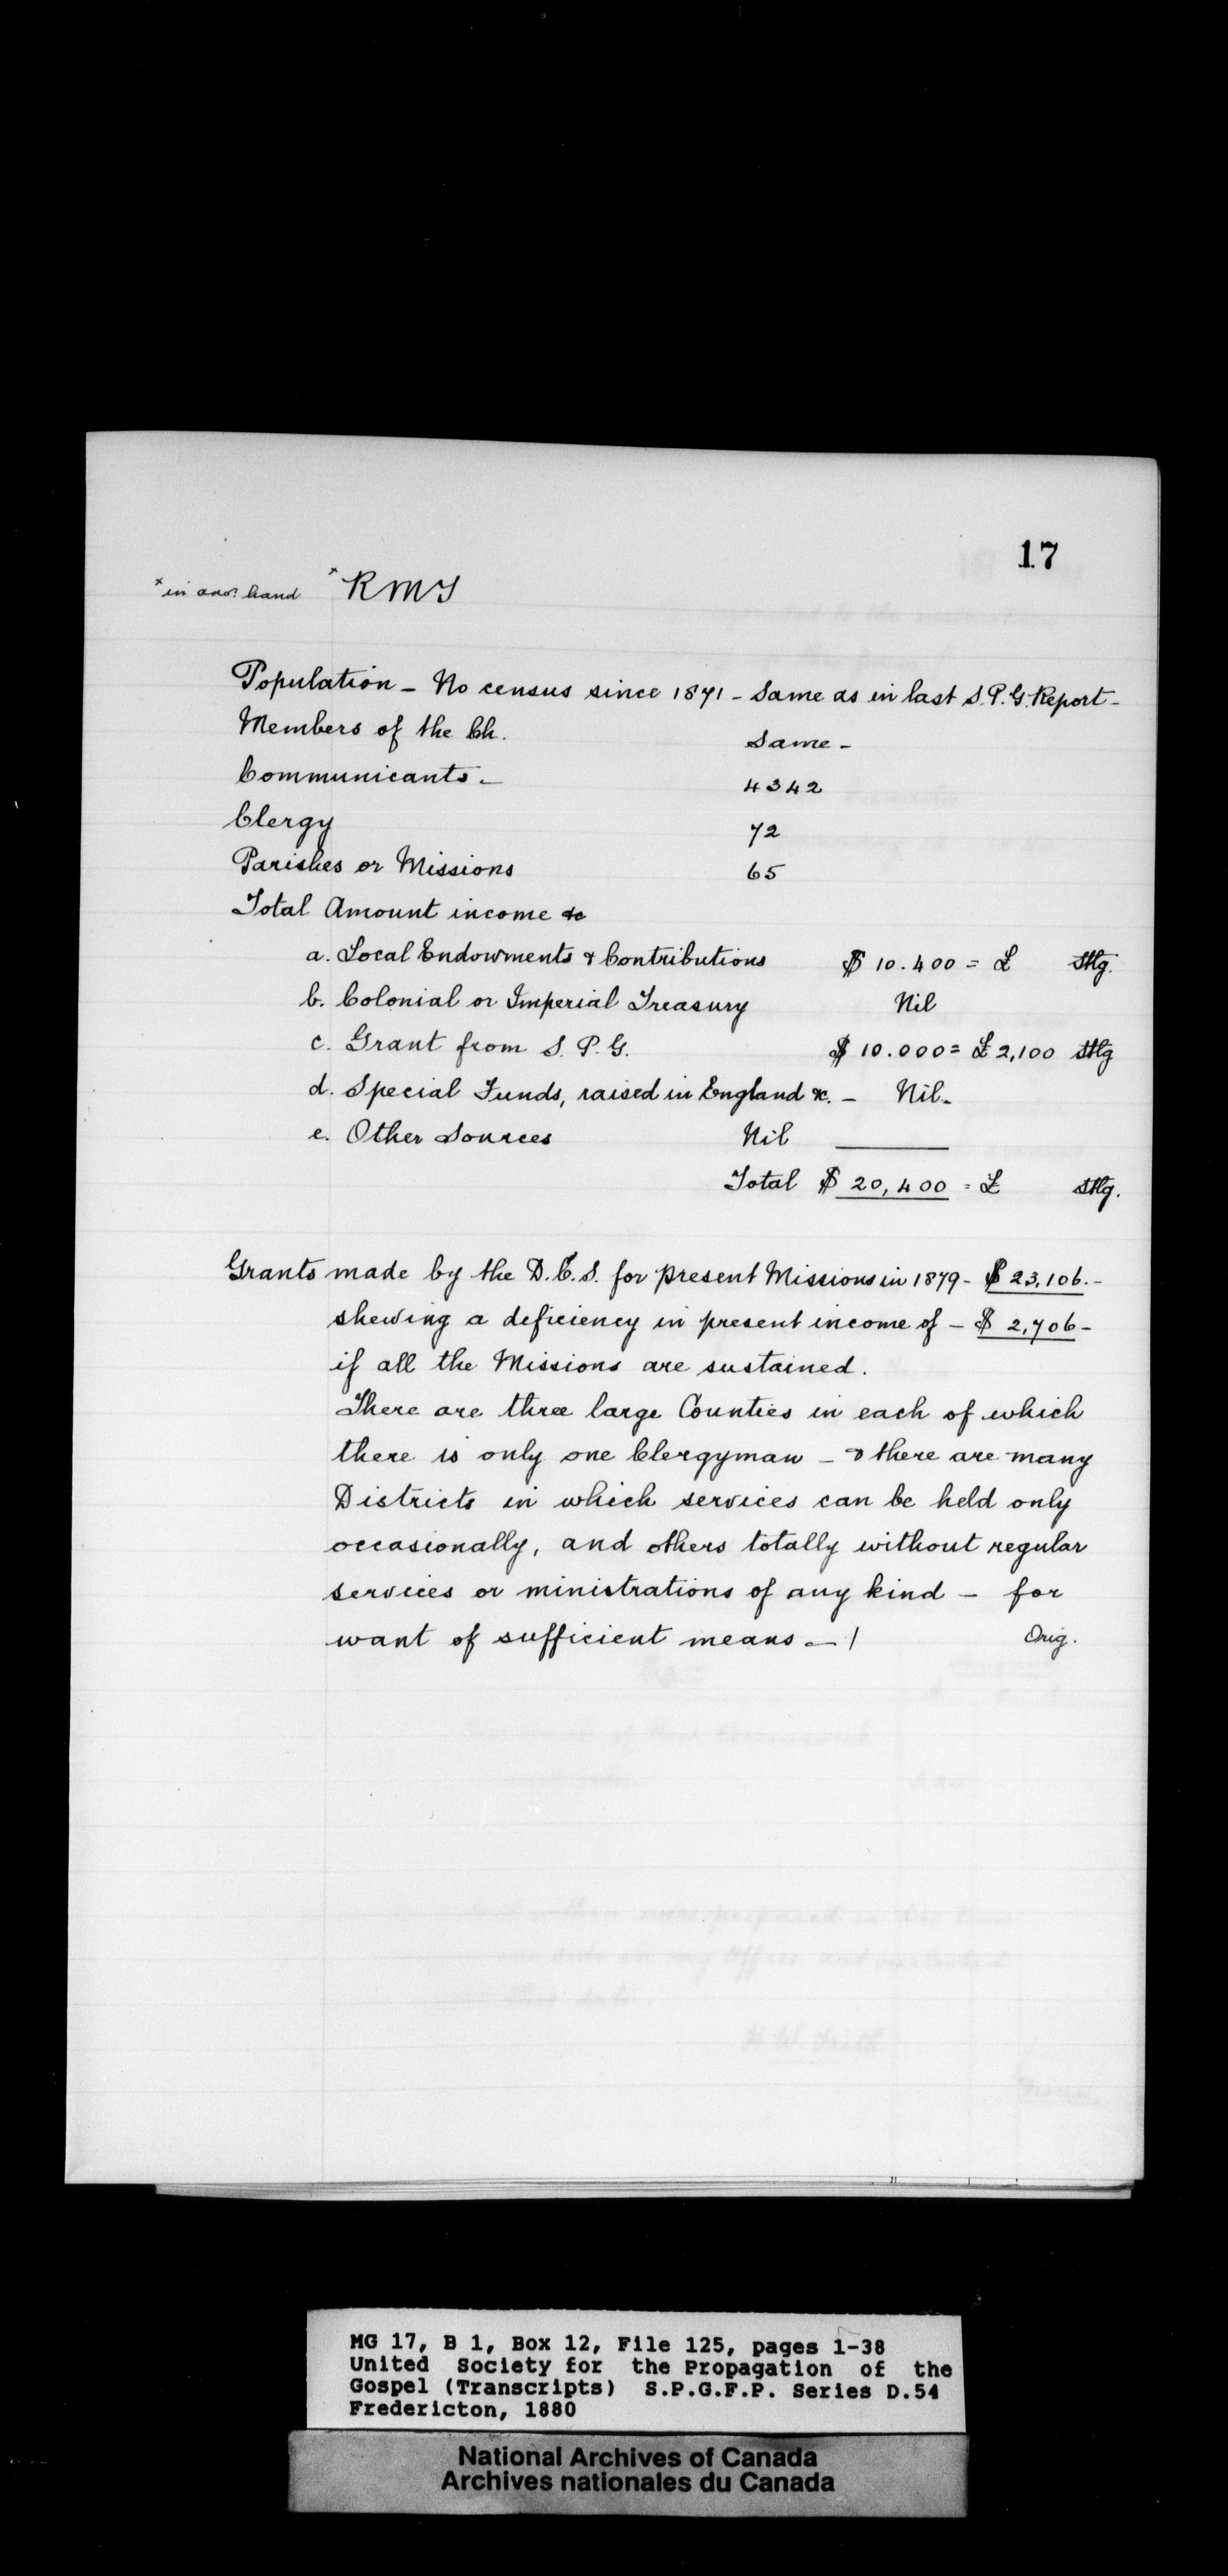 17
× in anor. hand × RMJ
Population – No census since 1871 – Same as in last S.P.G. Report –
Members of the Ch. Same –
Communicants – 4342
Clergy 72
Parishes or Missions 65
Total Amount income &c
a. Local Endowments & Contributions $ 10.400 = £ Stlg.
b. Colonial or Imperial Treasury Nil
c. Grant from S. P. G. $ 10.000 = £ 2,100 Stlg
d. Special Funds, raised in England &c. – Nil –
e. Other Sources Nil
Total $ 20,400 = £ Stlg.
Grants made by the D.C.S. for present Missions in 1879 – $ 23,106. –
shewing a deficiency in present income of – $ 2,706 –
if all the Missions are sustained.
There are three large Counties in each of which
there is only one Clergyman – & there are many
Districts in which services can be held only
occasionally, and others totally without regular
services or ministrations of any kind – for
want of sufficient means – / Orig.
MG 17, B 1, Box 12, File 125, pages 1-38
United Society for the Propagation of the
Gospel (Transcripts) S.P.G.F.P. Series D.54
Fredericton, 1880
National Archives of Canada
Archives nationales du Canada